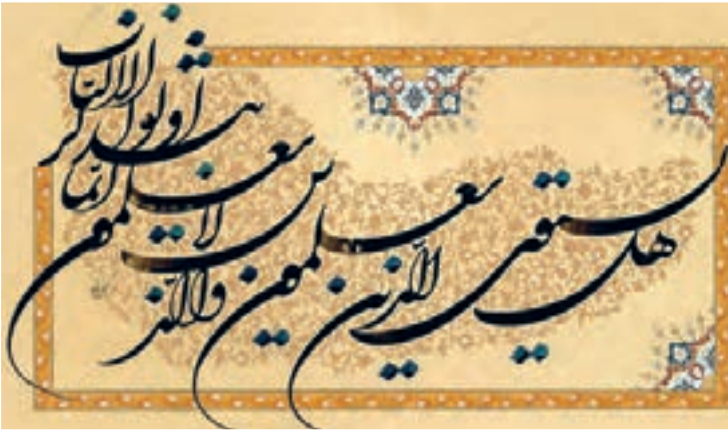 هل یستوی الذین یعلمون والذین لا یعلمون انما یتذکر اولوا الالباب